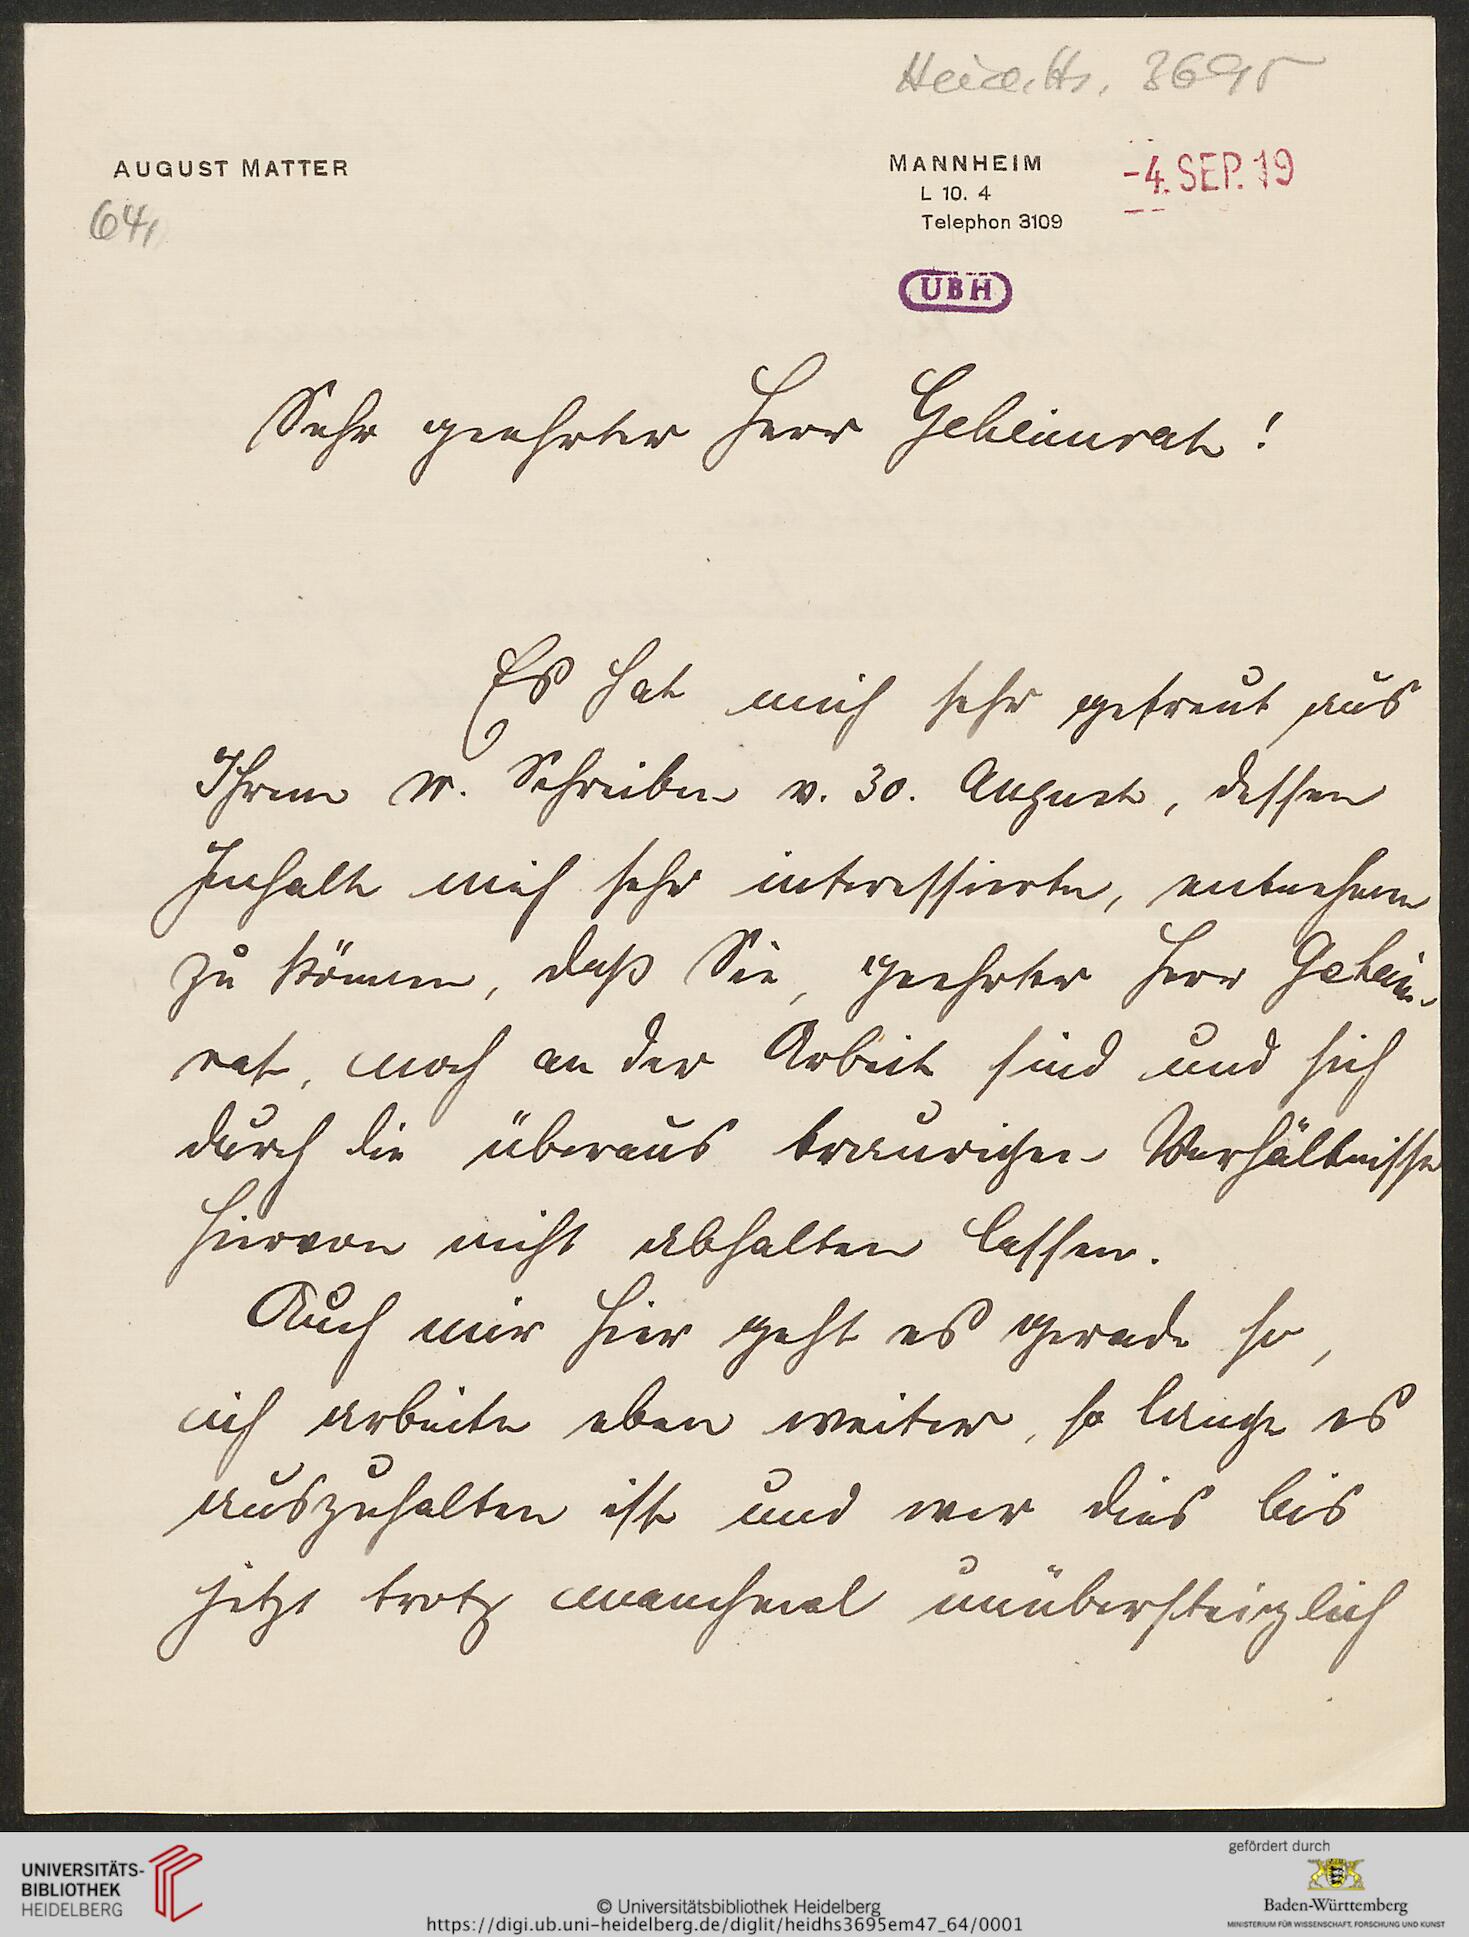 Heid. Hs. 3695
AUGUST MATTER
64,
MANNHEIM
L 10. 4
Telephon 3109
-4. SEP. 19
UBH
Sehr geehrter Herr Geheimrat!
Es hat mich sehr gefreut aus
Ihrem w. Schreiben v. 30. August, dessen
Inhalt mich sehr interessierte, entnehmen
zu können, daß Sie, geehrter Herr Geheim-
rat, noch an der Arbeit sind und sich
durch die überaus traurigen Verhältnisse
hiervon nicht abhalten lassen.
Auch mir hier geht es gerade so,
ich arbeite eben weiter, so lange es
auszuhalten ist und war dies bis
jetzt trotz manchmal unübersteiglich
UNIVERSITÄTS-
BIBLIOTHEK
HEIDELBERG
© Universitätsbibliothek Heidelberg
https://digi.ub.uni-heidelberg.de/diglit/heidhs3695em47_64/0001
gefördert durch
Baden-Württemberg
MINISTERIUM FÜR WISSENSCHAFT, FORSCHUNG UND KUNST